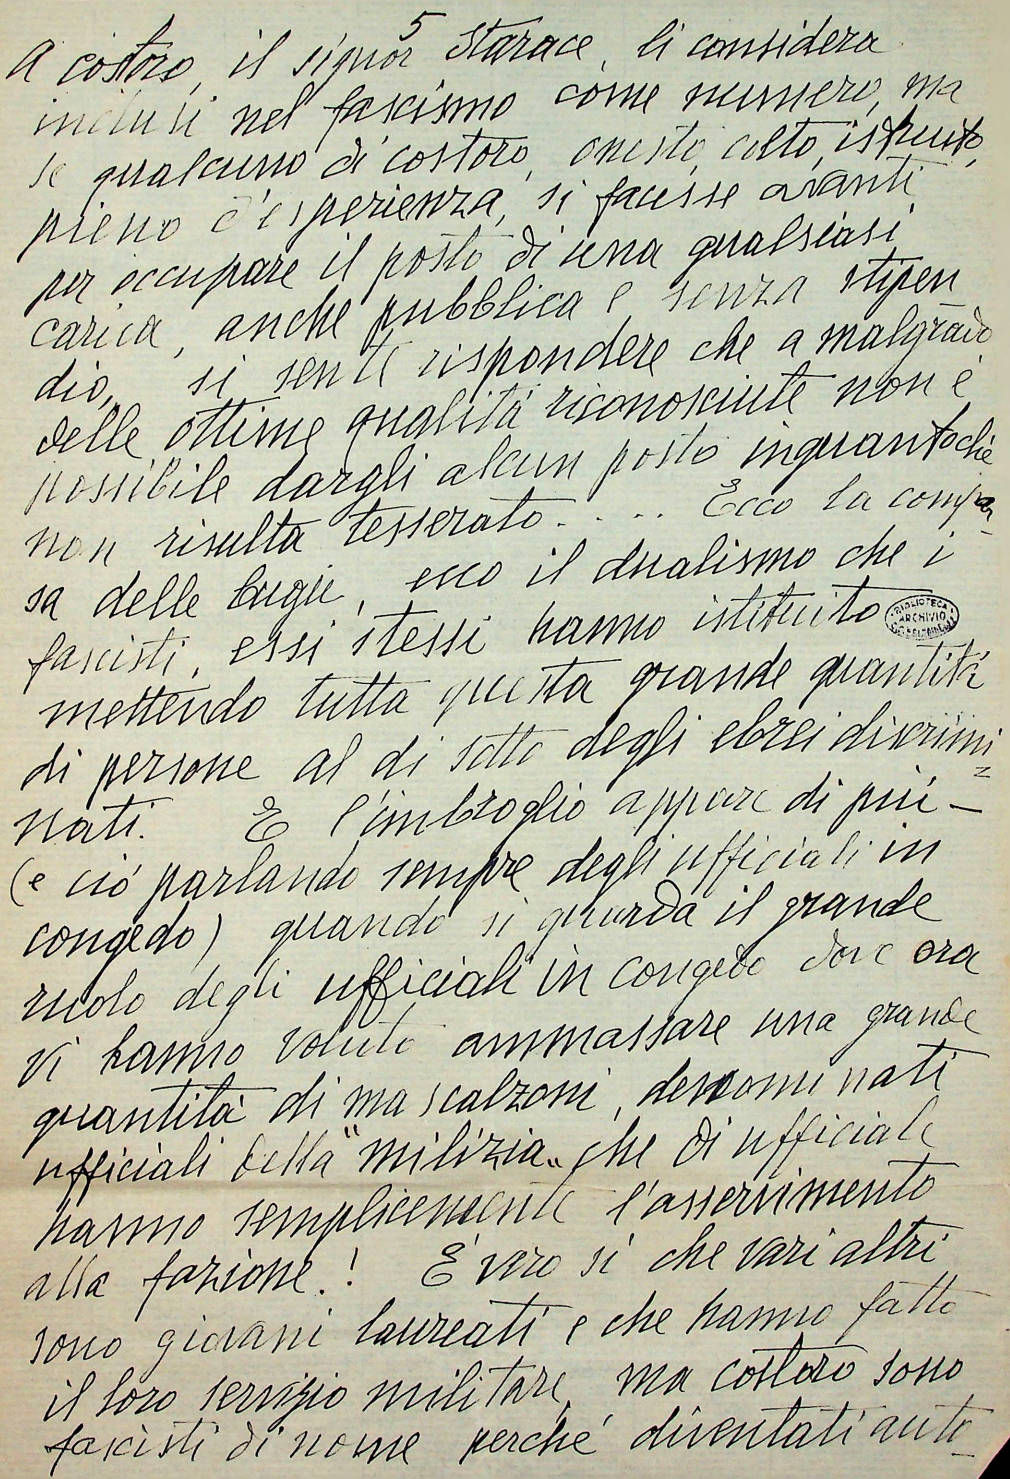 5
A costoro, il signor Starace, li considera
inclusi nel fascismo come numero, ma
se qualcuno di costoro, onesto, colto, istruito,
pieno d'esperienza, si facesse avanti
per occupare il posto di una qualsiasi
carica, anche pubblica e senza stipen
dio, si sente rispondere che a malgrado
delle ottime qualità riconosciute non è
possibile dargli alcun posto inquantochè
non risulta tesserato..... Ecco la compar
sa delle bugie, ecco il dualismo che i
fascisti, essi stessi hanno istituito
BIBLIOTECA ARCHIVIO
mettendo tutta questa grande quantità
di persone al di sotto degli ebrei discrimi
nati. E l'imbroglio appare di più –
(e ciò parlando sempre degli ufficiali in
congedo) quando si guarda il grande
ruolo degli ufficiali in congedo dove ora
vi hanno voluto ammassare una grande
quantità di mascalzoni, denominati
ufficiali della "milizia" che di ufficiale
hanno semplicemente l'asservimento
alla fazione! È vero si che vari altri
sono giovani laureati e che hanno fatto
il loro servizio militare, ma costoro sono
fascisti di nome perché diventati auto